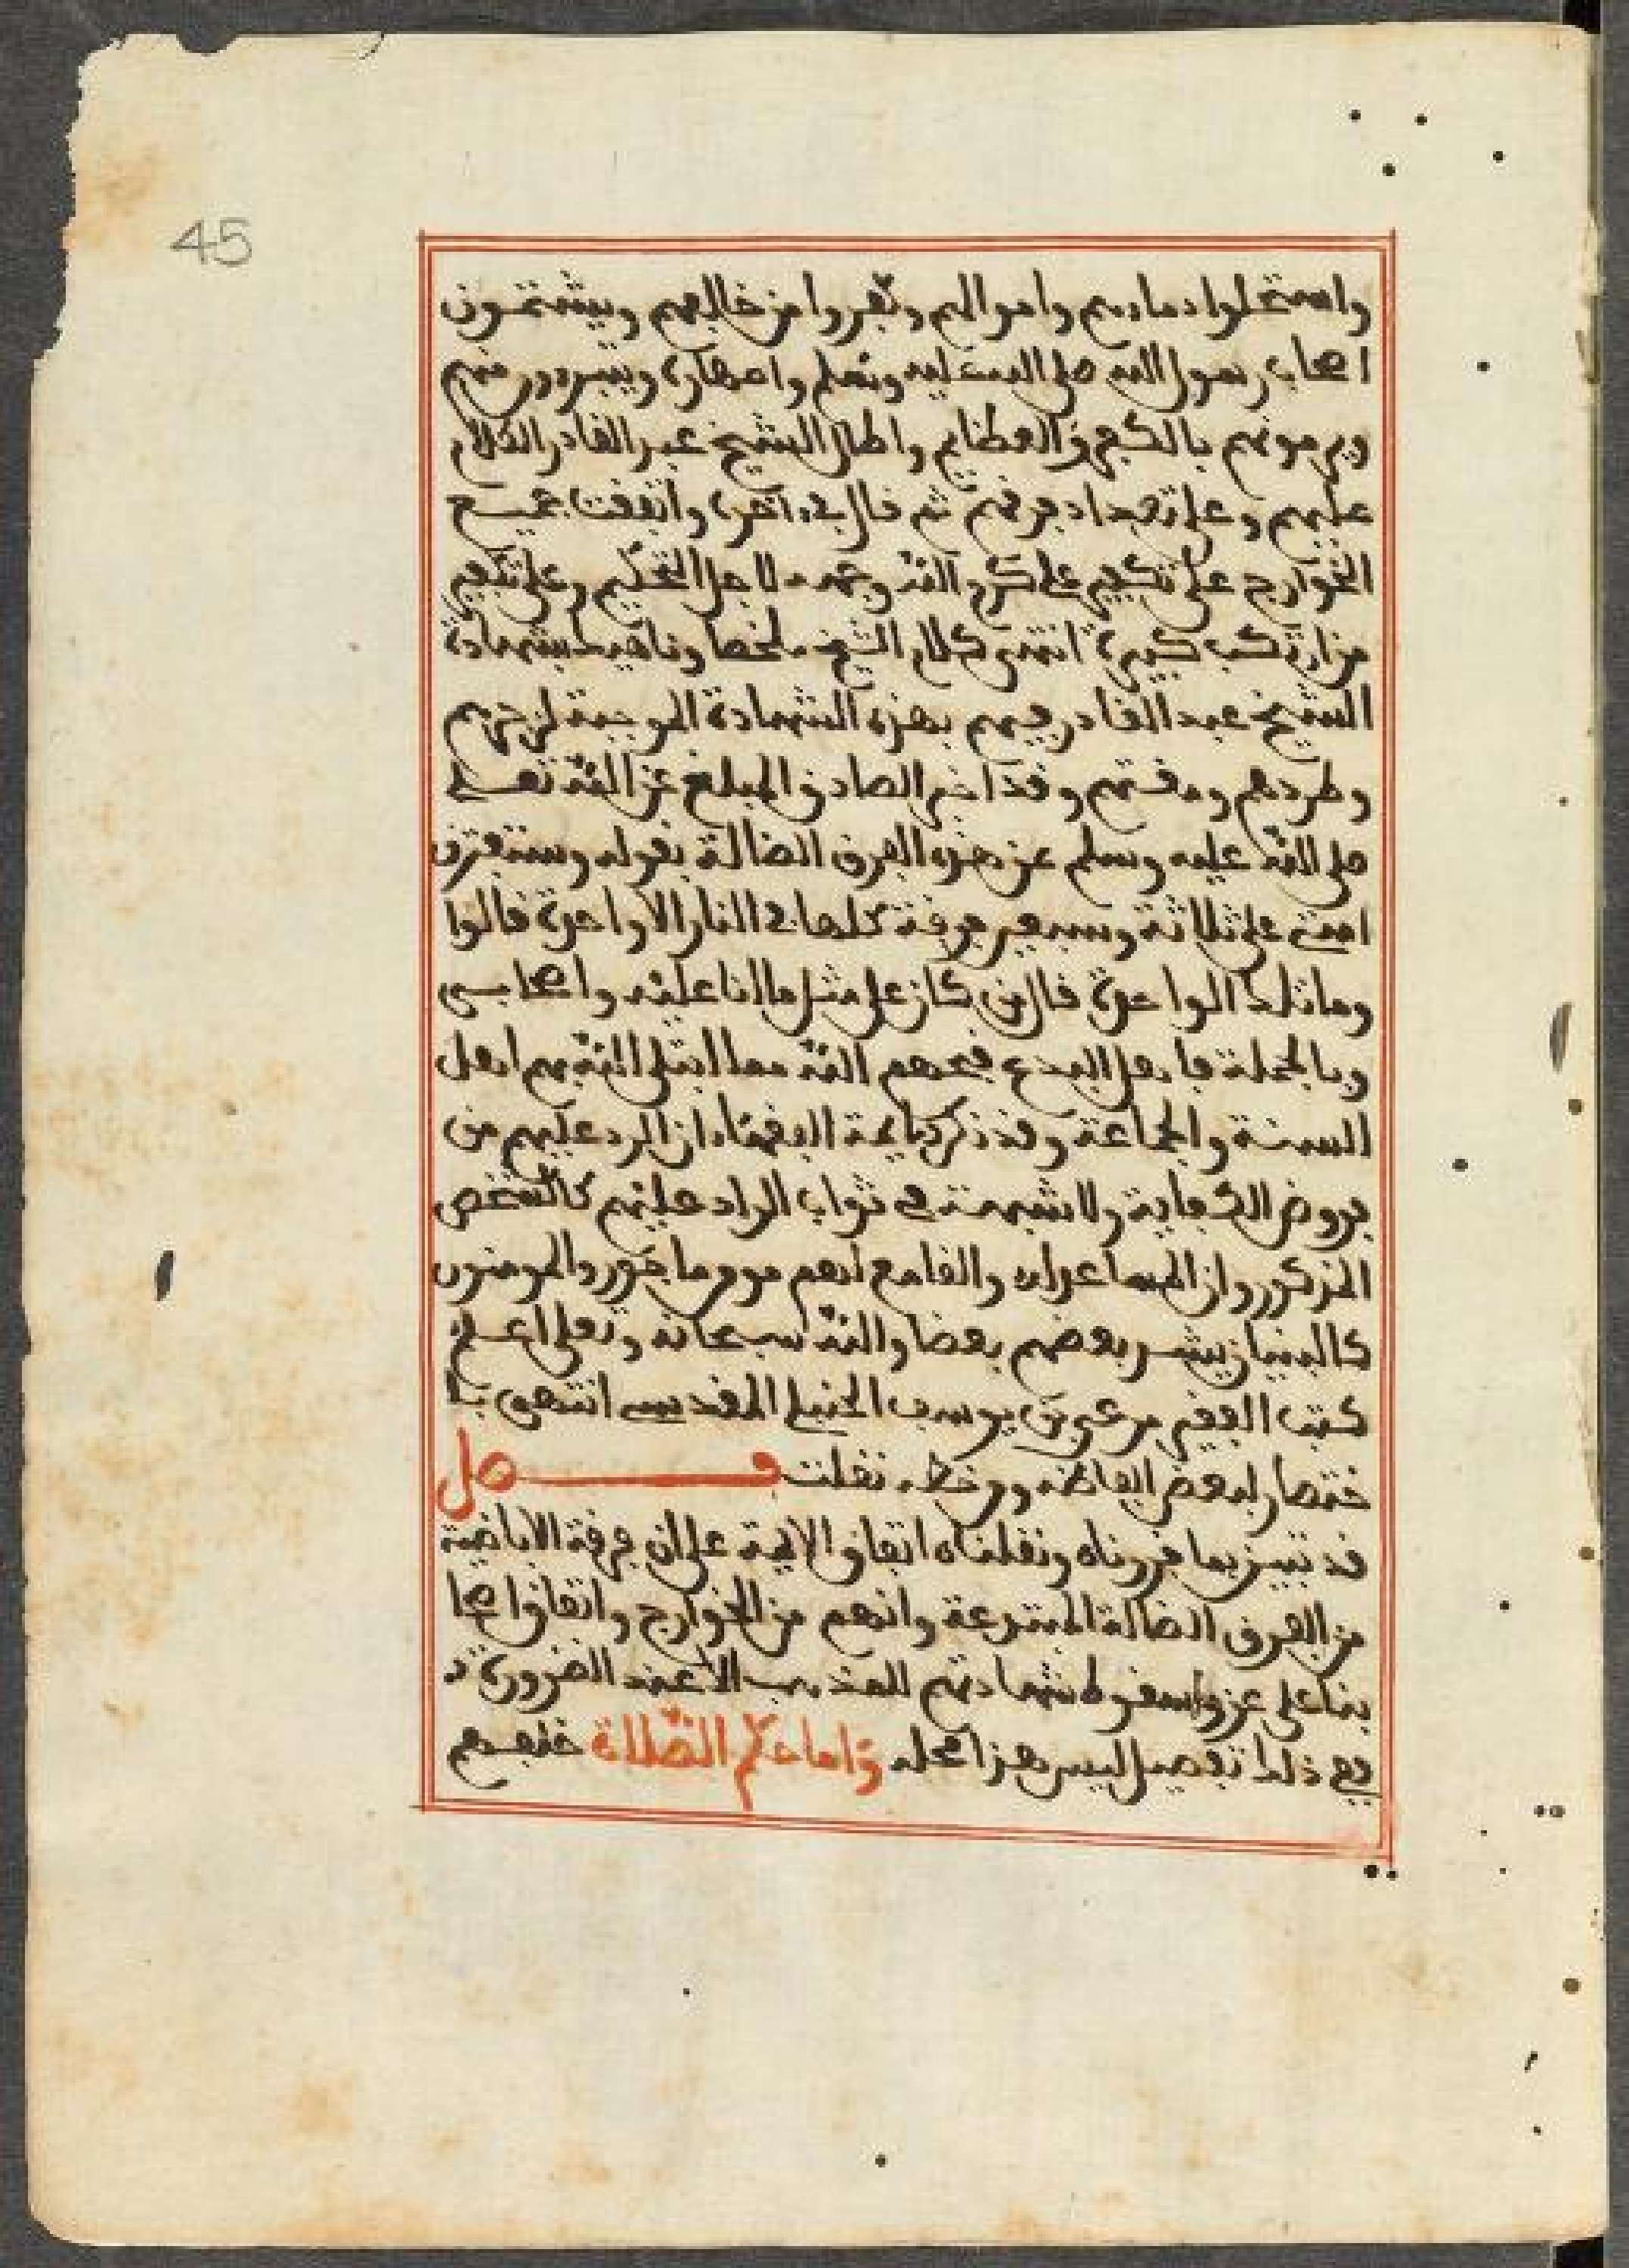 45
واستحلوا دماءهم واموالهم وكفروا من خالفهم ويشتمون
اصحاب رسول الله صلى الله عليه وسلم واصهاره ويتبرءون منهم
ويرمونهم بالكفر والعظايم واطال الشيخ عبد القادر الكلام
عليهم وعلى تعداد فرقهم ثم قال في اخره واتفقت جميع
الخوارج على تكفير على كرم الله وجهه لاجل التحكيم وعلى تكفير
من ارتكب كبيرة انتهى كلام الشيخ ملخصا وناهيك بشهادة
الشيخ عبد القادر فيهم بهذه الشهادة الموجبة
وطردهم ومقتهم وقد اخبر الصادق المبلغ عن الله تعلى
صلى الله عليه وسلم عن هذه الفرق الضالة بقوله وستفترق
امتي على ثلاثة وسبعين فرقة كلها في النار الا واحدة قالوا
وما تلك الواحدة قال من كان على مثل ما انا عليه واصحابي
وبالجملة فاهل البدع قبحهم الله مما ابتلى الله بهم اهل
السنة والجماعة وقد ذكر ايمة الفقهاء ان الرد عليهم من
فروض الكفاية ولا شبهة في ثواب الراد عليهم كالشخص
المذكور وان المساعد له والقامع لهم موجر ماجور والمومنون
كالبنيان يشد بعضهم بعضا والله سبحانه وتعلى اعلم
كتب الفقير مرعي بن يوسف الحنبلي المقدسي انتهى با
ختصار لبعض الفاظه ومن خطه نقلت فصل
قد تبين بما قررناه ونقلناه اتفاق الايمة على ان فرقة الاباضية
من الفرق الضالة المبتدعة وانهم من الخوارج واتفاق اصحا
بنا على عزو اسقوط شهادتهم للمذهب الا عند الضرورة و
في ذلك تفصيل ليس هذا محله واما حكم الصلاة خلفهم